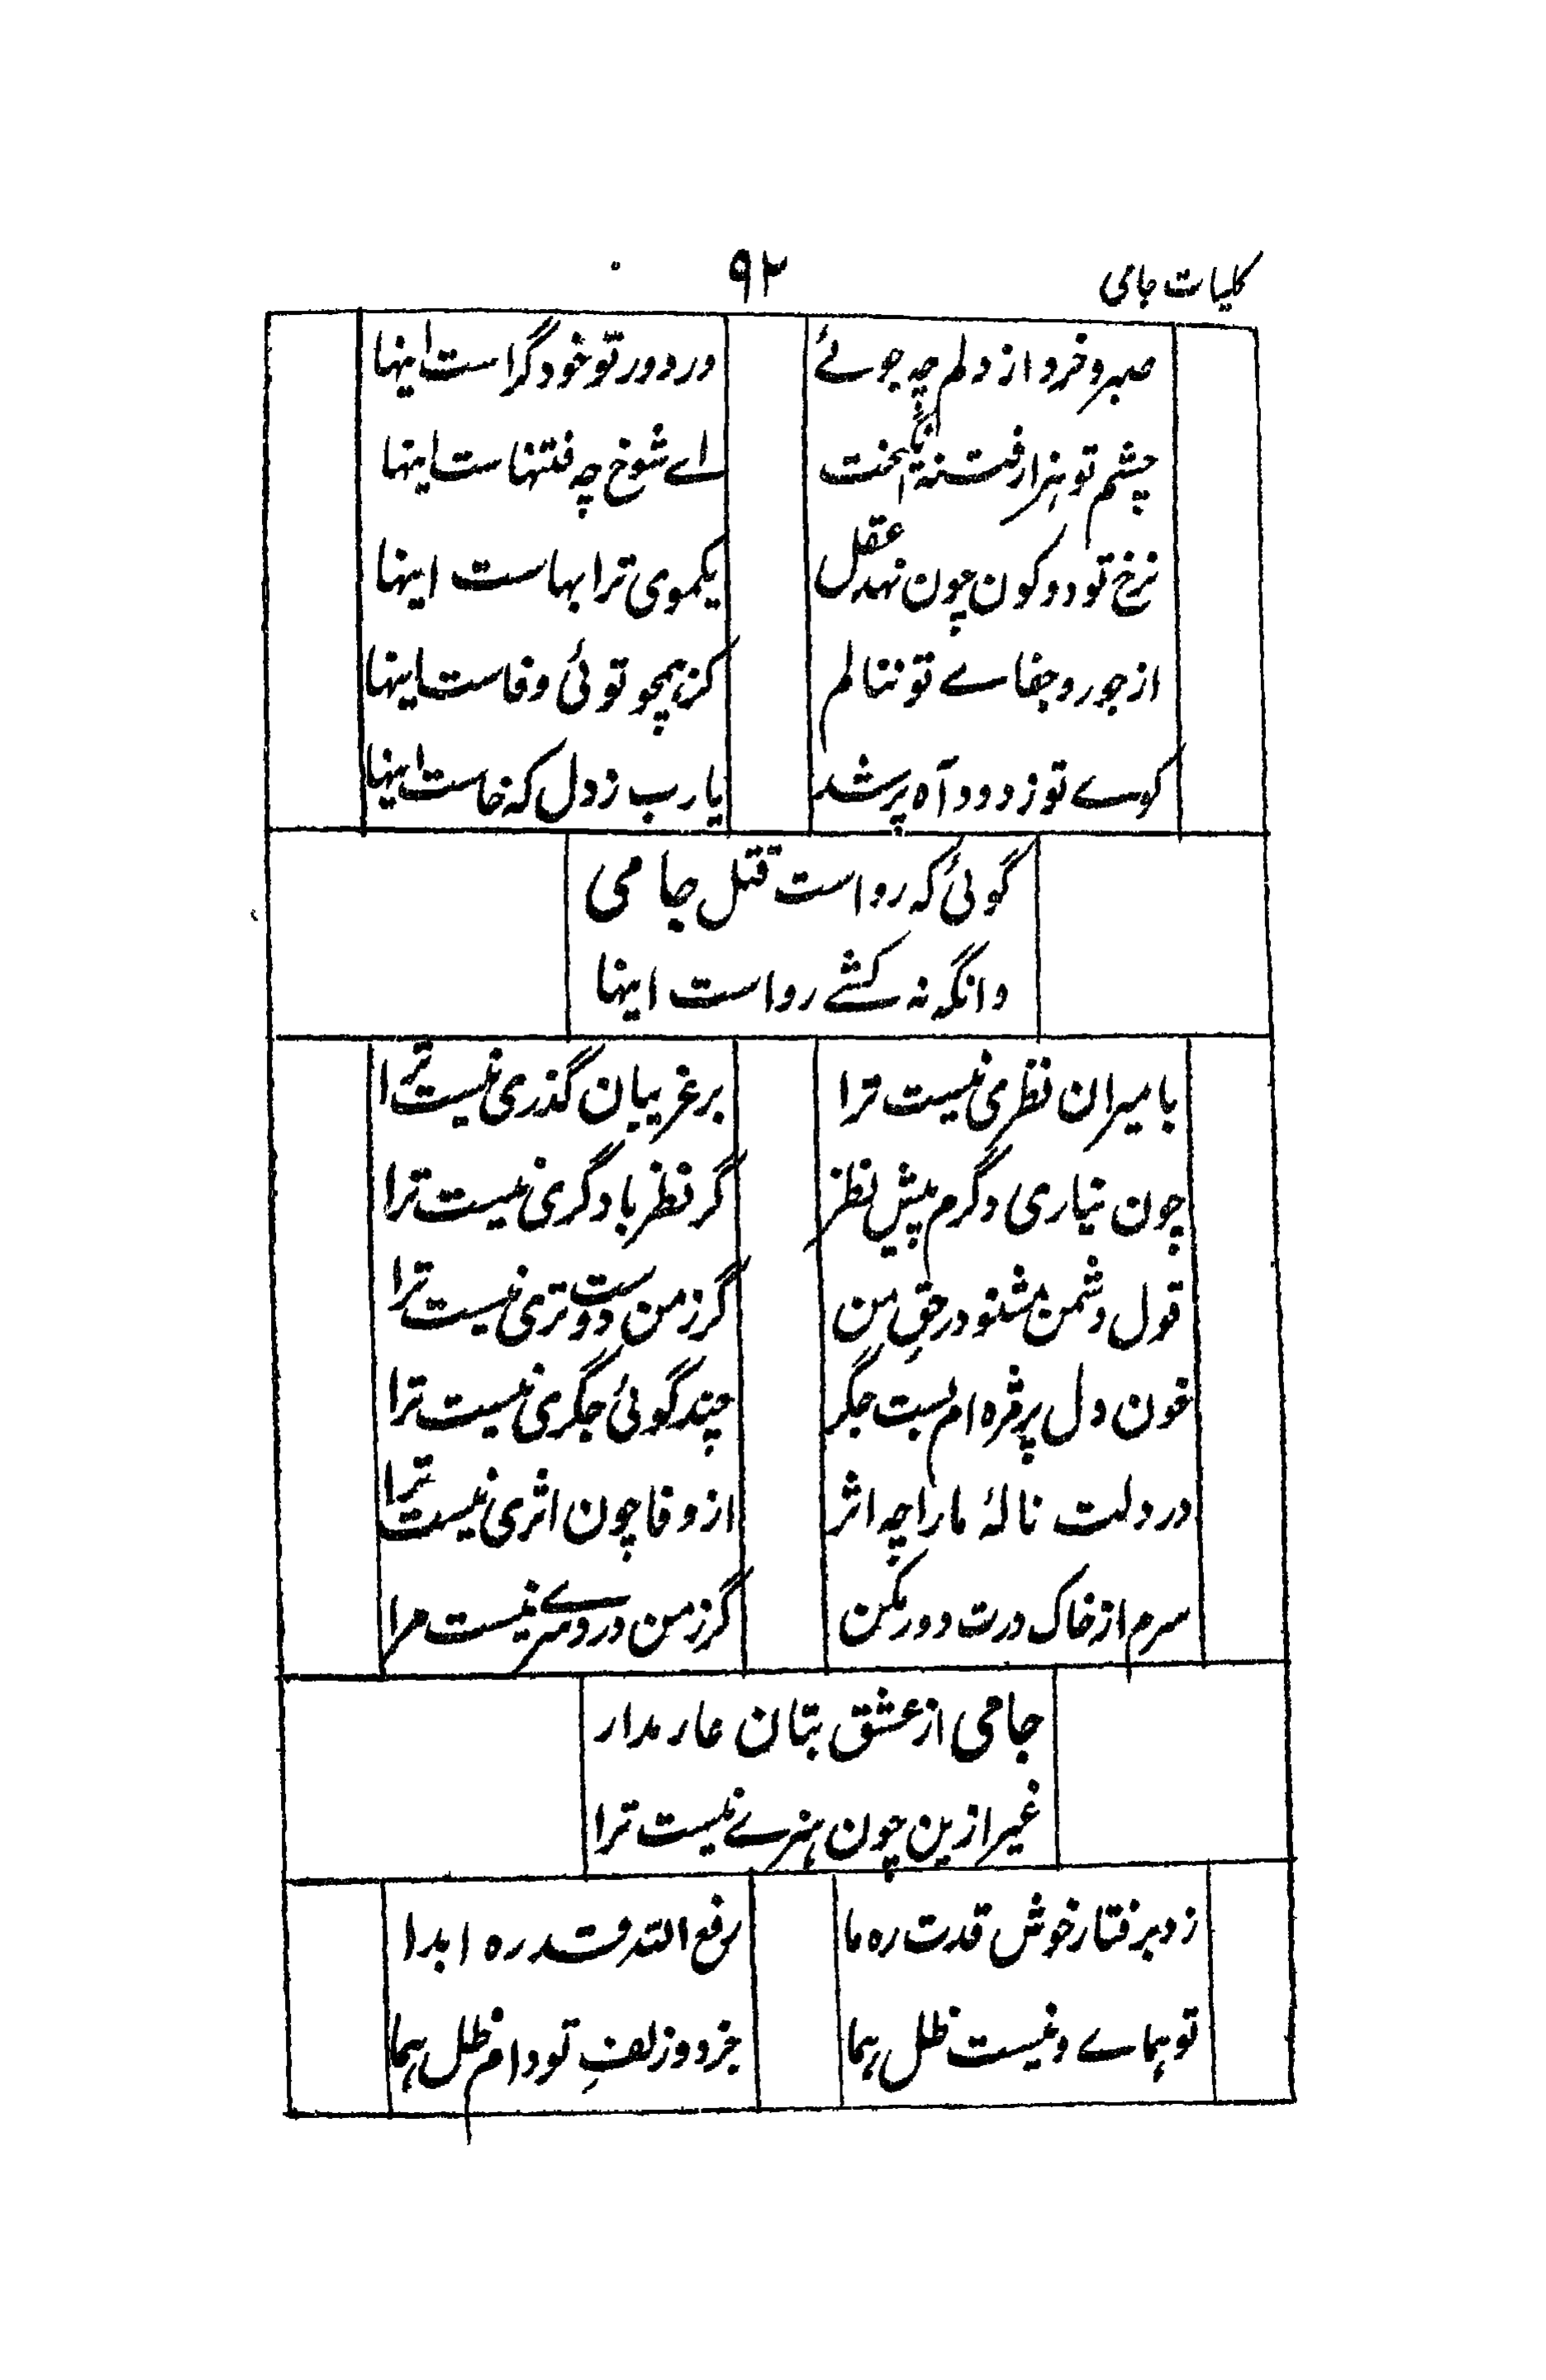 کلیات جامی
۹۲
صبر و خرد از دلم چه جوئے
در دور تو خود گراست اینها
چشم تو هزار فتنه انگیخت
اے شوخ چه فتنهاست اینها
نرخ تو دو کون چون نهد عقل
یکموی ترا بهاست اینها
از جور و جفاے تو ننالم
کز همچو توئی وفاست اینها
کوے تو ز دود آه پر شد
یارب ز دل که خاست اینها
گوئی که رواست قتل جامی
وانگه نه کشے رواست اینها
با میران نظری نیست ترا
بر غریبان گذری نیست ترا
چون نیاری دگرم پیش نظر
گر نظر با دگری نیست ترا
قول دشمن مشنو در حقِ من
گر ز من دوست تری نیست ترا
خون دل پر مژه ام بست جگر
چند گوئی جگری نیست ترا
در دلت نالۀ ما را چه اثر
از وفا چون اثری نیست ترا
سرم از خاک درت دور مکن
گر ز من درد سرے نیست مرا
جامی از عشق بتان عار مدار
غیر ازین چون هنرے نیست ترا
زد برفتار خوش قدت ره ما
رفع الله قدره ابدا
تو هماے و نیست ظل هما
جز دو زلفِ تو دام ظل هما